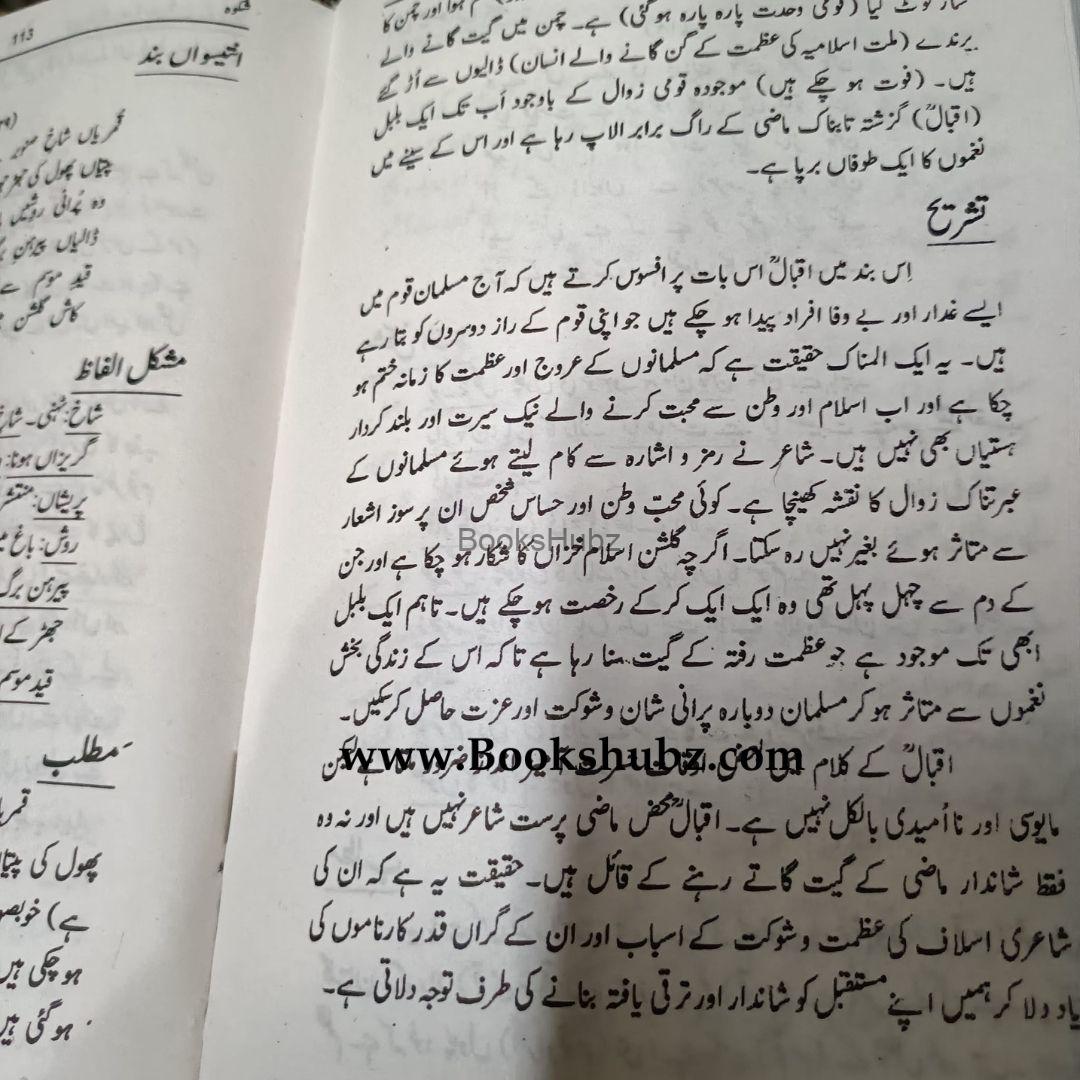 ٹوٹ گیا (قومی وحدت پارہ پارہ ہو گئی) ہے۔ چمن میں گیت گانے والے
پرندے (ملت اسلامیہ کی عظمت کے گن گانے والے انسان) ڈالیوں سے اُڑ گئے
ہیں۔ (فوت ہو چکے ہیں) موجودہ قومی زوال کے باوجود اَب تک ایک بلبل
(اقبالؒ) گزشتہ تابناک ماضی کے راگ برابر الاپ رہا ہے اور اس کے سینے میں
نغموں کا ایک طوفاں برپا ہے۔
تشریح
اِس بند میں اقبالؒ اس بات پر افسوس کرتے ہیں کہ آج مسلمان قوم میں
ایسے غدار اور بے وفا افراد پیدا ہو چکے ہیں جو اپنی قوم کے راز دوسروں کو بتا رہے
ہیں۔ یہ ایک المناک حقیقت ہے کہ مسلمانوں کے عروج اور عظمت کا زمانہ ختم ہو
چکا ہے اور اب اسلام اور وطن سے محبت کرنے والے نیک سیرت اور بلند کردار
ہستیاں بھی نہیں ہیں۔ شاعر نے رمز و اشارہ سے کام لیتے ہوئے مسلمانوں کے
عبرتناک زوال کا نقشہ کھینچا ہے۔ کوئی محبِّ وطن اور حساس شخص ان پرسوز اشعار
سے متاثر ہوئے بغیر نہیں رہ سکتا۔ اگرچہ گلشن اسلام خزاں کا شکار ہو چکا ہے اور جن
کے دم سے چہل پہل تھی وہ ایک ایک کر کے رخصت ہو چکے ہیں۔ تاہم ایک بلبل
ابھی تک موجود ہے جو عظمت رفتہ کے گیت سنا رہا ہے تاکہ اس کے زندگی بخش
نغموں سے متاثر ہو کر مسلمان دوبارہ پرانی شان و شوکت اور عزت حاصل کر سکیں۔
اقبالؒ کے کلام میں ہے لیکن
مایوسی اور نااُمیدی بالکل نہیں ہے۔ اقبالؒ محض ماضی پرست شاعر نہیں ہیں اور نہ وہ
فقط شاندار ماضی کے گیت گاتے رہنے کے قائل ہیں۔ حقیقت یہ ہے کہ ان کی
شاعری اسلاف کی عظمت و شوکت کے اسباب اور ان کے گراں قدر کارناموں کی
یاد دلا کر ہمیں اپنے مستقبل کو شاندار اور ترقی یافتہ بنانے کی طرف توجہ دلاتی ہے۔
BooksHubz
www.Bookshubz.com
شکوہ
113
انتیسواں بند
قمریاں شاخ صنوبر
پتیاں پھول کی جھڑ
وہ پُرانی روشیں
ڈالیاں پیرہن
قید موسم سے
کاش گلشن
مشکل الفاظ
شاخ: ٹہنی۔
گریزاں ہونا:
پریشاں: منتشر
روش: باغ
پیرہن برگ
جھڑ کے
قید موسم
مطلب
پھول کی پتیاں
ہے)
ہو چکی ہیں
ہو گئی ہیں